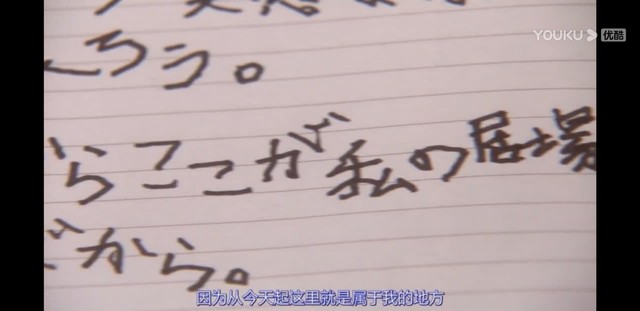 YOUKU 优酷
くろう。
らここが私の居場
だから。
因为从今天起这里就是属于我的地方